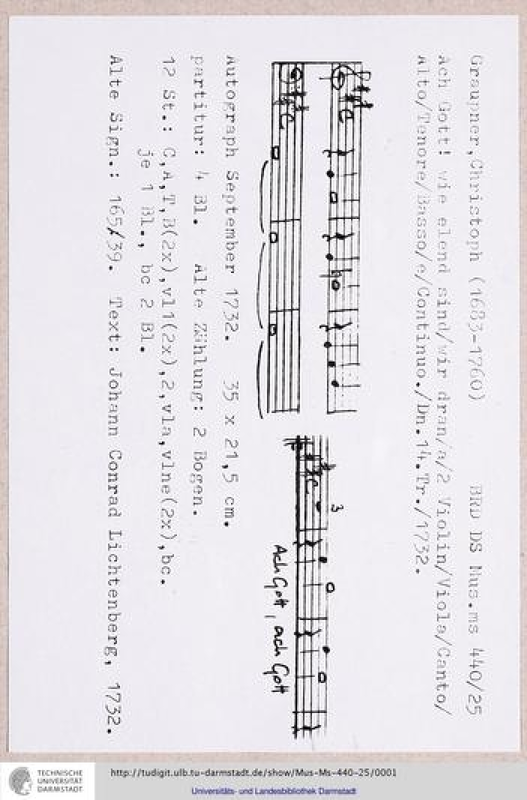 Graupner,Christoph (1683-1760) BRD DS Mus.ms 440/25
Ach Gott! wie elend sind/wir dran/a/2 Violin/Viola/Canto/
Alto/Tenore/Basso/e/Continuo./Dn.14.Tr./1732.
3
Ach Gott, ach Gott
Autograph September 1732. 35 x 21,5 cm.
partitur: 4 Bl. Alte Zählung: 2 Bogen.
12 St.: C,A,T,B(2x),vl1(2x),2,vla,vlne(2x),bc.
je 1 Bl., bc 2 Bl.
Alte Sign.: 165/39. Text: Johann Conrad Lichtenberg, 1732.
TECHNISCHE
UNIVERSITÄT
DARMSTADT
http://tudigit.ulb.tu-darmstadt.de/show/Mus-Ms-440-25/0001
Universitäts- und Landesbibliothek Darmstadt